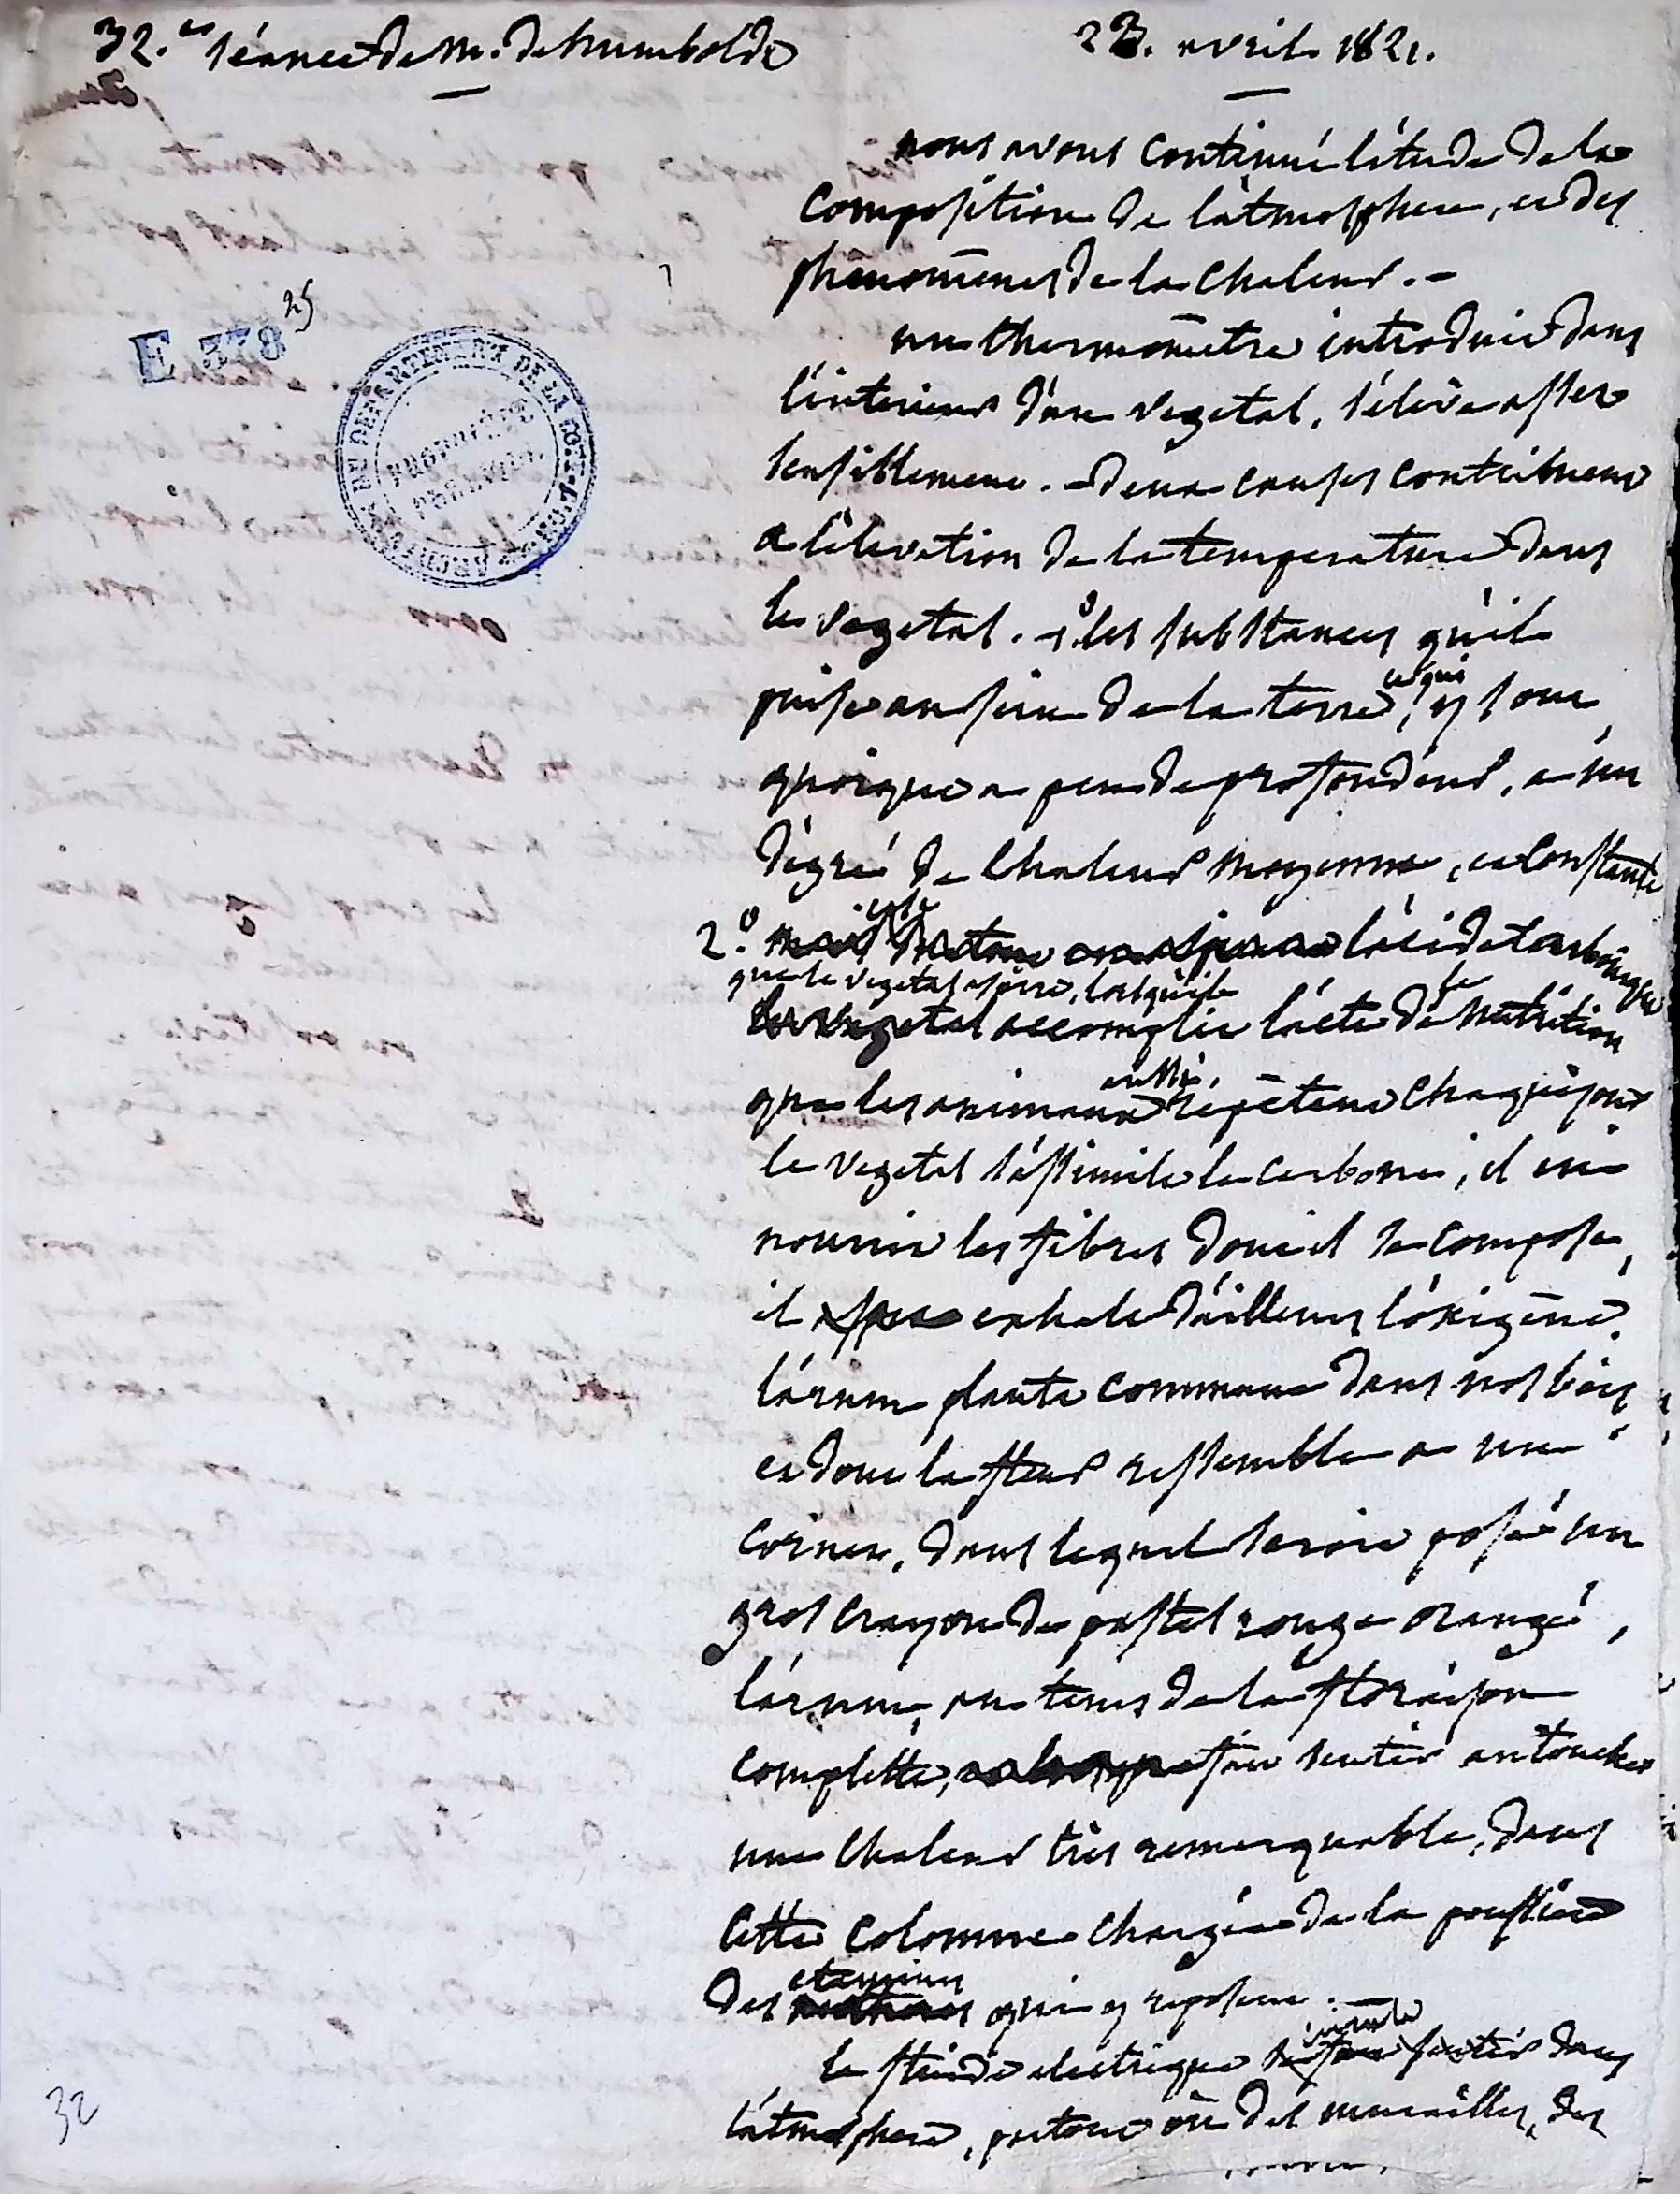 32.e séance de M. de humboldt
23. avril 1821.
nous avons continué l'étude de la
composition de l'atmosphere, et des
phenomènes de la chaleur. -
un thermomètre introduit dans
l'intérieur d'un vegetal, s'élève assez
sensiblement. - deux causes contribuent
a l'élévation de la temperature dans
le vegetal. - 1º les substances qu'il
puise au sein de la terre, et qui y sont,
quoique a peu de profondeur, a un
dégré de chaleur moyenne, et constante
2.º est l'acide carbonique
que le vegetal aspire, lorsqu'il
accomplit l'acte de nutrition
que les animaux aussi, repètent chaque jour
le vegetal s'assimile le carbone, il en
nourrit les fibres dont il se compose,
il exhale d'ailleurs l'oxigène.
l'arum plante commune dans nos bois
et dont la fleur ressemble a un
cornet, dans lequel seroit posé un
gros crayon de pastel rouge orangé,
l'arum, au tems de la floraison
complette, fait sentir au toucher
une chaleur très remarquable, dans
cette colomne chargée de la poussière
des etamines qui y reposent. -
le fluide electrique circule dans
l'atmosphere, partout où des murailles, des
E 378 25
ARCHIVES DU DEPARTEMENT DE LA MOSELLE
PROPRIÉTÉ
32